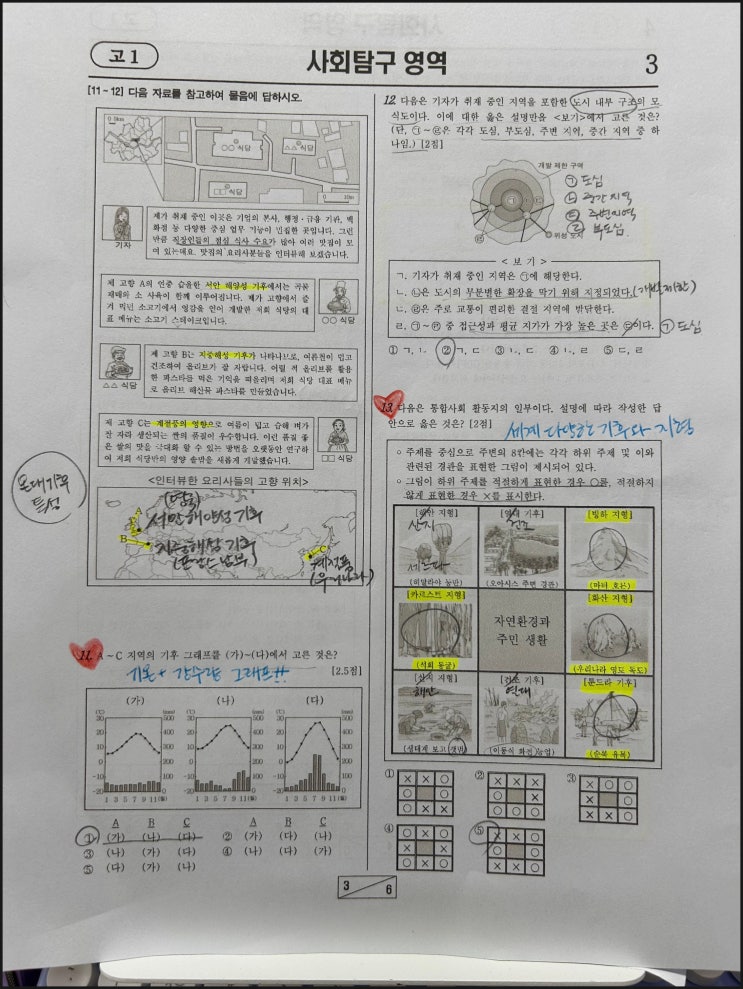 고1
사회탐구 영역
3
[11~12] 다음 자료를 참고하여 물음에 답하시오.
○○ 식당
△△ 식당
□□ 식당
제가 취재 중인 이곳은 기업의 본사, 행정·금융 기관, 백
화점 등 다양한 중심 업무 기능이 밀집한 곳입니다. 그런
만큼 직장인들의 점심 식사 수요가 많아 여러 맛집이 모
여 있는데요. 맛집의 요리사분들을 인터뷰해 보겠습니다.
기자
제 고향 A의 연중 습윤한 서안 해양성 기후에서는 곡물
재배와 소 사육이 함께 이루어집니다. 제가 고향에서 즐
겨 먹던 소고기에서 영감을 얻어 개발한 저희 식당의 대
표 메뉴는 소고기 스테이크입니다.
○○ 식당
제 고향 B는 지중해성 기후가 나타나므로, 여름철이 덥고
건조하여 올리브가 잘 자랍니다. 어릴 적 올리브를 활용
한 파스타를 먹은 기억을 떠올리며 저희 식당 대표 메뉴
로 올리브 해산물 파스타를 만들었습니다.
△△ 식당
제 고향 C는 계절풍의 영향으로 여름이 덥고 습해 벼가
잘 자라 생산되는 쌀의 품질이 우수합니다. 이런 품질 좋
은 쌀의 맛을 극대화 할 수 있는 방법을 오랫동안 연구하
여 저희 식당만의 영양 솥밥을 새롭게 개발했습니다.
□□ 식당
온대기후
특성
<인터뷰한 요리사들의 고향 위치>
(영국)
A
서안해양성 기후
B
지중해성 기후
C
계절풍
(우리나라)
11. A~C 지역의 기후 그래프를 (가)~(다)에서 고른 것은?
[2.5점]
기온 + 강수량 그래프!!
(가) (나) (다)
1 3 5 7 9 11(월) 1 3 5 7 9 11(월) 1 3 5 7 9 11(월)
A B C A B C
① (가) (나) (다) ② (가) (다) (나)
③ (나) (가) (다) ④ (나) (다) (가)
⑤ (다) (가) (나)
12 다음은 기자가 취재 중인 지역을 포함한 도시 내부 구조의 모
식도이다. 이에 대한 옳은 설명만을 <보기>에서 고른 것은?
(단, ㉠~㉣은 각각 도심, 부도심, 주변 지역, 중간 지역 중 하
나임.) [2점]
개발 제한 구역
㉠ 도심
㉡ 중간지역
㉢ 주변지역
㉣ 부도심
위성 도시
<보 기>
ㄱ. 기자가 취재 중인 지역은 ㉠에 해당한다.
ㄴ. ㉡은 도시의 무분별한 확장을 막기 위해 지정되었다. (개발제한)
ㄷ. ㉣은 주로 교통이 편리한 결절 지역에 발달한다.
ㄹ. ㉠~㉣ 중 접근성과 평균 지가가 가장 높은 곳은 ㉢이다. ㉠ 도심
① ㄱ, ㄴ ② ㄱ, ㄷ ③ ㄴ, ㄷ ④ ㄴ, ㄹ ⑤ ㄷ, ㄹ
13. 다음은 통합사회 활동지의 일부이다. 설명에 따라 작성한 답
안으로 옳은 것은? [2점]
세계 다양한 기후와 지형
○ 주제를 중심으로 주변의 8칸에는 각각 하위 주제 및 이와
관련된 경관을 표현한 그림이 제시되어 있다.
○ 그림이 하위 주제를 적절하게 표현한 경우 ○를, 적절하지
않게 표현한 경우 ×를 표시한다.
[해안 지형] [열대 기후] [빙하 지형]
산지 건조
(히말라야 농반) (오아시스 주변 경관) (마터 호른)
[카르스트 지형] 자연환경과 [화산 지형]
주민 생활
(석회 동굴) (우리나라 영토 독도)
[산지 지형] [건조 기후] [툰드라 기후]
해안 열대
(생태계 보고 갯벌) (이동식 화전 농업) (순록 유목)
① × × ○
② × × ○
③ × × ○
④
⑤
3
6